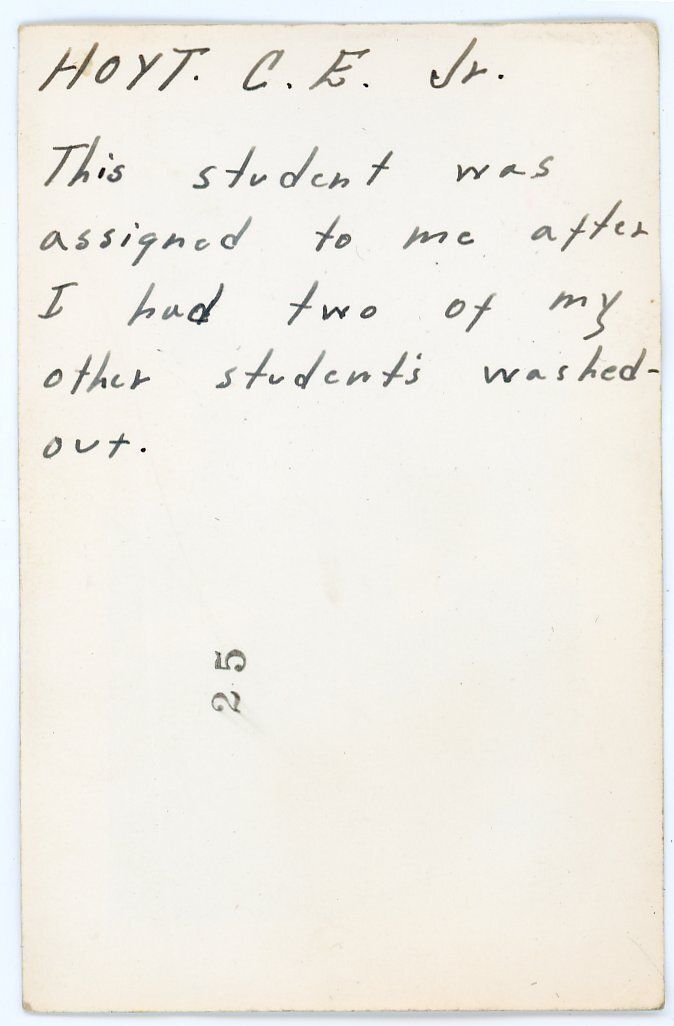 HOYT. C. E. Jr.
This student was
assigned to me after
I had two of my
other student's washed-
out.
25